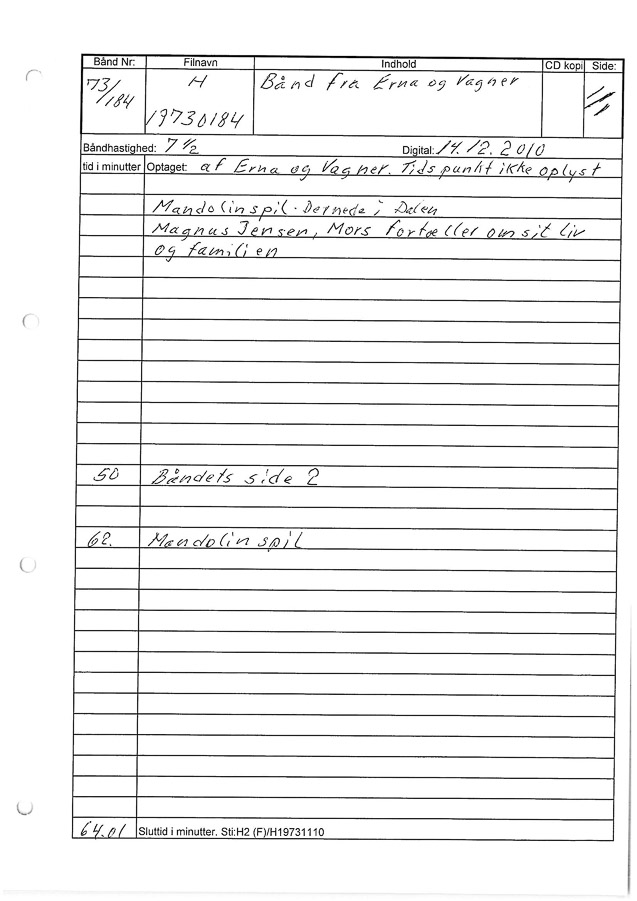 Bånd Nr: Filnavn Indhold CD kopi Side:
73/184 H Bånd fra Erna og Vagner 1/1
19730184
Båndhastighed: 7 1/2 Digital: 14.12.2010
tid i minutter Optaget: af Erna og Vagner. Tidspunkt ikke oplyst
Mandolinspil. Dernede i Dalen
Magnus Jensen, Mors fortæller om sit liv
og familien
50 Båndets side 2
62. Mandolinspil
64.01 Sluttid i minutter. Sti:H2 (F)/H19731110